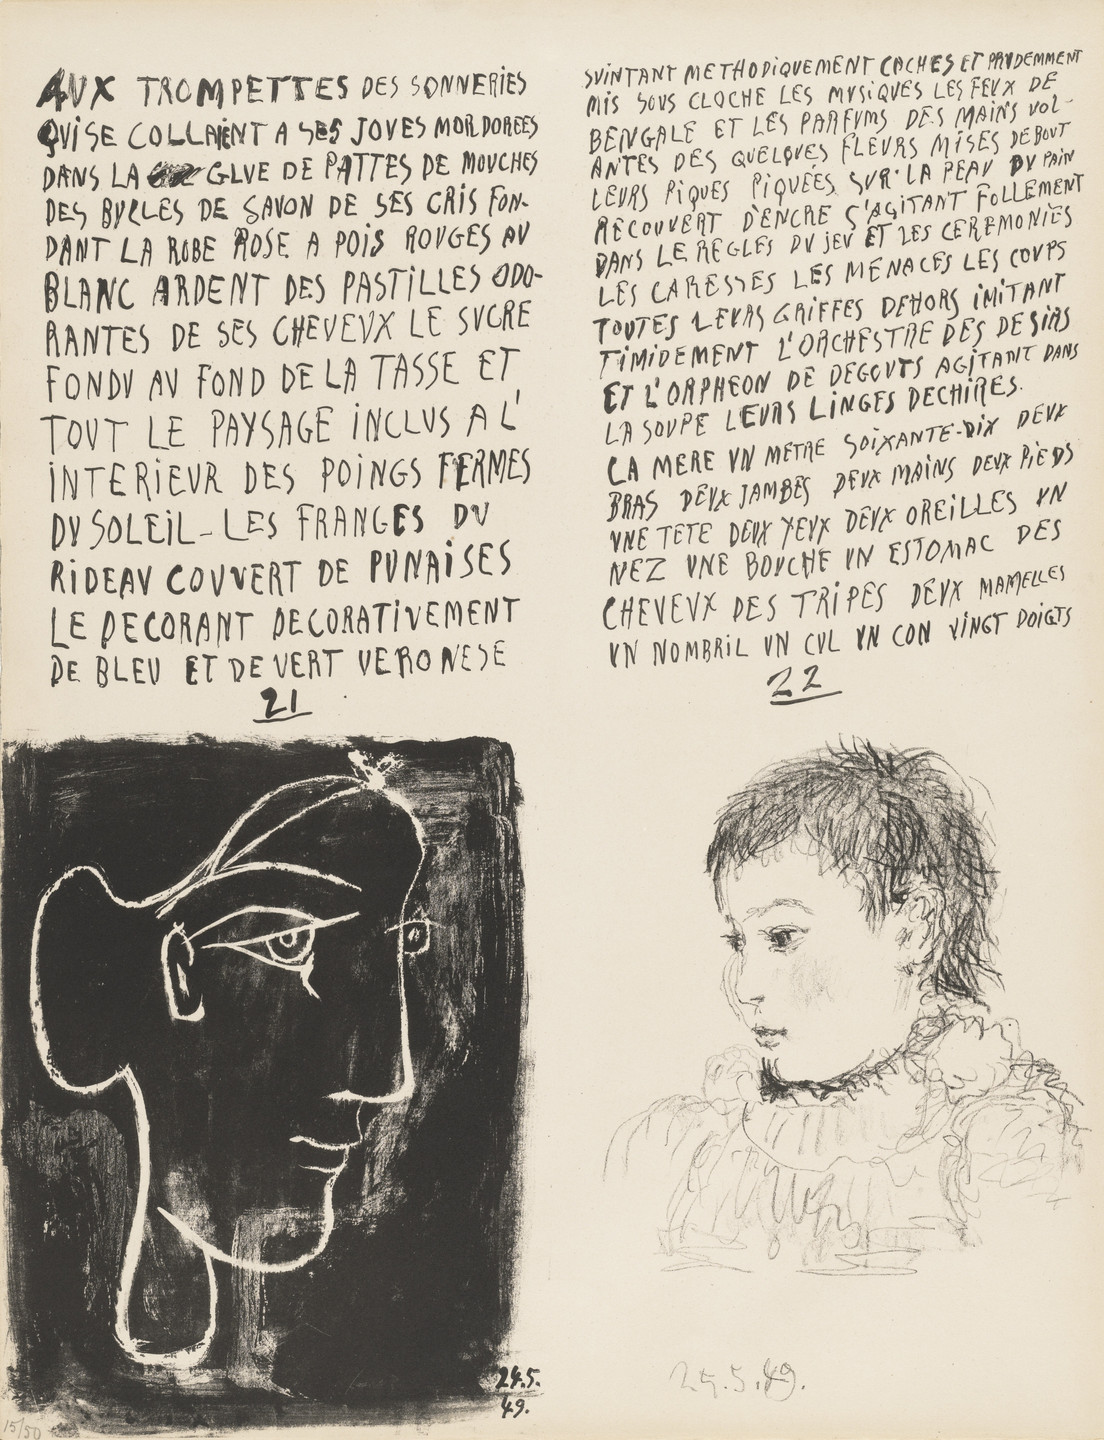 AUX TROMPETTES DES SONNERIES
QUI SE COLLAIENT A SES JOVES MORDOREES
DANS LA GLVE DE PATTES DE MOUCHES
DES BVLLES DE SAVON DE SES CRIS FON-
DANT LA ROBE ROSE A POIS ROVGES AV
BLANC ARDENT DES PASTILLES ODO-
RANTES DE SES CHEVEVX LE SVCRE
FONDV AV FOND DE LA TASSE ET
TOVT LE PAYSAGE INCLVS A L'
INTERIEVR DES POINGS FERMES
DV SOLEIL - LES FRANGES DV
RIDEAV COVVERT DE PVNAISES
LE DECORANT DECORATIVEMENT
DE BLEV ET DE VERT VERONESE
21
SVINTANT METHODIQVEMENT CACHES ET PRVDEMMENT
MIS SOVS CLOCHE LES MVSIQVES LES FEVX DE
BENGALE ET LES PARFVMS DES MAINS VOL-
ANTES DES QVELQVES FLEVRS MISES DEBOVT
LEVRS PIQVES PIQVÉES SVR LA PEAV DV PAIN
RECOVVERT D'ENCRE S'AGITANT FOLLEMENT
DANS LE REGLES DV JEV ET LES CEREMONIES
LES CARESSES LES MENACES LES COVPS
TOVTES LEVRS GRIFFES DEHORS IMITANT
TIMIDEMENT L'ORCHESTRE DES DESIRS
ET L'ORPHEON DE DEGOVTS AGITANT DANS
LA SOVPE LEVRS LINGES DECHIRES.
LA MERE VN METRE SOIXANTE-DIX DEVX
BRAS DEVX JAMBES DEVX MAINS DEVX PIEDS
VNE TETE DEVX YEVX DEVX OREILLES VN
NEZ VNE BOVCHE VN ESTOMAC DES
CHEVEVX DES TRIPES DEVX MAMELLES
VN NOMBRIL VN CVL VN CON VINGT DOIGTS
22
24.5.
49.
24.5.49.
15/50